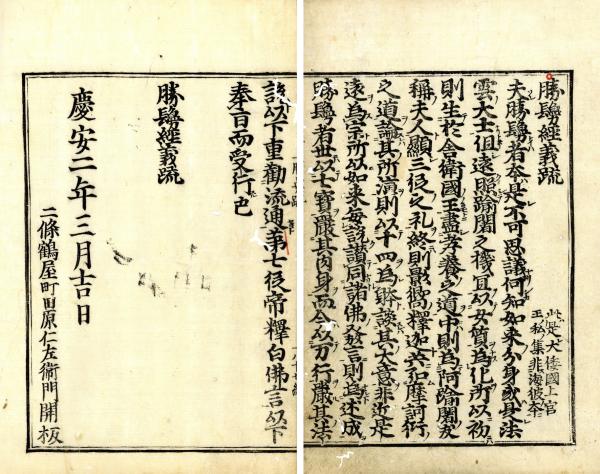 勝鬘經義疏
此是大倭國上宮
王私集非海彼本
夫勝鬘者本是不可思議何知如来分身或是法
雲大士但遠照踰闍之機宜以女質爲化所以初
則生於舍衛國王盡孝養之道中則爲阿踰闍友
稱夫人顯三從之礼終則影響釋迦共弘摩訶衍
之道論其所演則以十四爲躰談其大意非近是
遠爲宗所以如来每説讃同諸佛又發言則爲述成
勝鬘者世以七寶嚴其肉身而今以万行嚴其法
説以下重勸流通第七從帝釋白佛言以下
奉旨而受行也
勝鬘經義疏
慶安二年三月吉日
二條鶴屋町田原仁左衛門開板